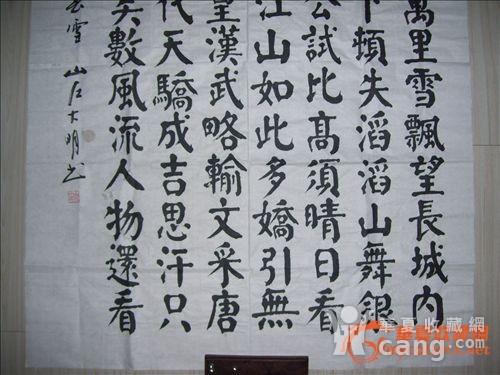 萬里雪飄望長城內
下頓失滔滔山舞銀
公試比高須晴日看
江山如此多嬌引無
皇漢武略輸文采唐
代天驕成吉思汗只
矣數風流人物還看
雪 山左大明书
華夏收藏網
cang.com